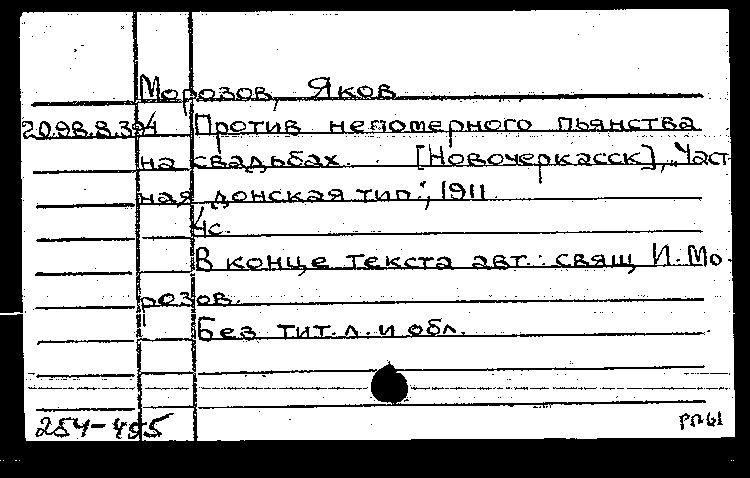 Морозов, Яков
20.98.8.394 Против непомерного пьянства
на свадьбах. [Новочеркасск], "Част
ная донская тип.", 1911
4с.
В конце текста авт.: свящ И. Мо-
розов.
Без тит. л. и обл.
254-455 РП61